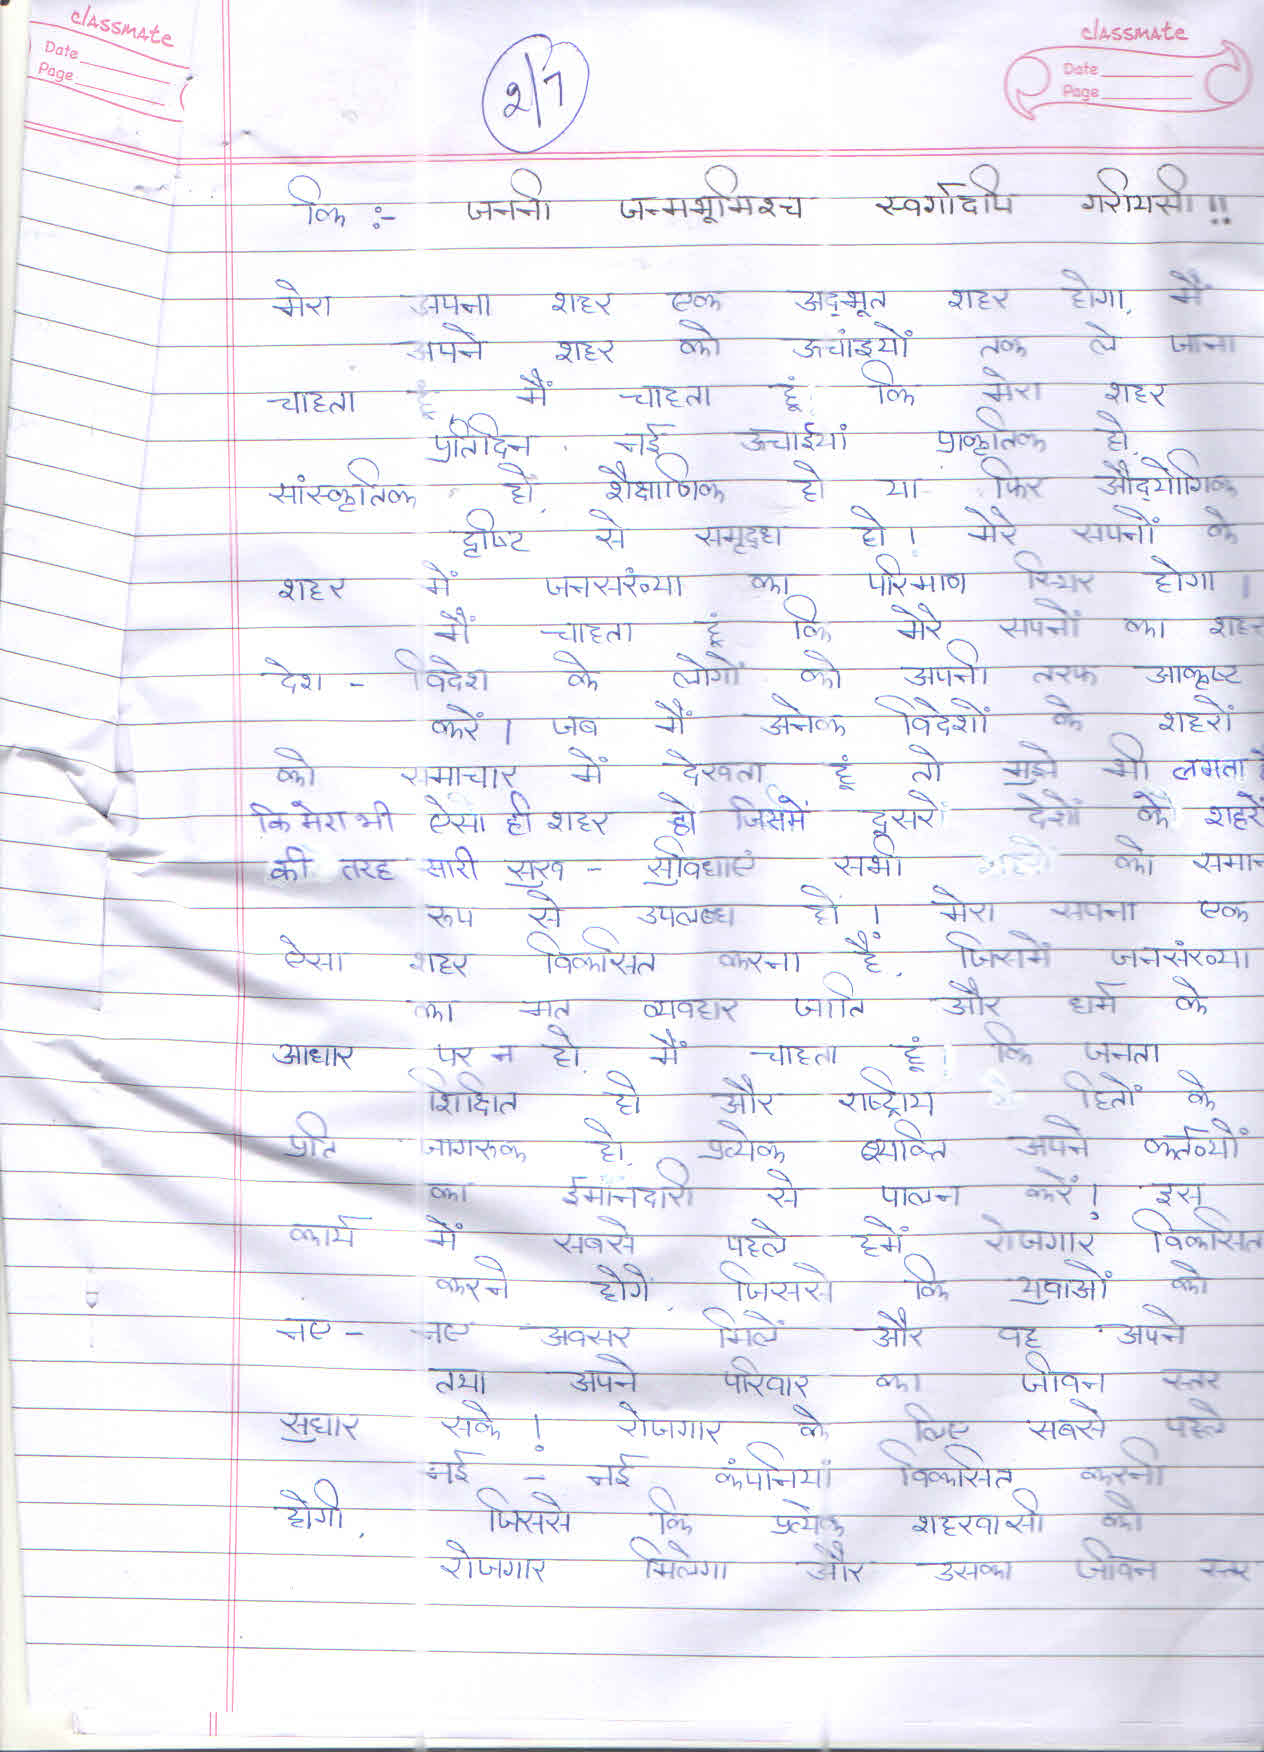 classmate
Date
Page
classmate
Date
Page
2/7
कि :- जननी जन्मभूमिश्च स्वर्गादपि गरीयसी !!
मेरा अपना शहर एक अद्भूत शहर होगा, मैं
अपने शहर को ऊचांइयों तक ले जाना
चाहता हूं मैं चाहता हूं कि मेरा शहर
प्रतिदिन नई ऊचाईयां प्राकृतिक हो,
सांस्कृतिक हो, शैक्षाणिक हो या फिर औद्योगिक
दृष्टि से समृद्ध हो । मेरे सपनों के
शहर में जनसंख्या का परिमाण स्थिर होगा ।
मैं चाहता हूं कि मेरे सपनों का शहर
देश - विदेश के लोगों को अपनी तरफ आकृष्ट
करें । जब मैं अनेक विदेशों के शहरों
को समाचार में देखता हूं तो मुझे भी लगता है
कि मेरा भी ऐसा ही शहर हो जिसमें दूसरे देशों के शहरों
की तरह सारी सुख - सुविधाएं सभी को समान
रूप से उपलब्ध हों । मेरा सपना एक
ऐसा शहर विकसित करना है, जिसमें जनसंख्या
का मत व्यवहार जाति और धर्म के
आधार पर न हो, मैं चाहता हूं कि जनता
शिक्षित हो और राष्ट्रीय हितों के
प्रति जागरुक हो, प्रत्येक व्यक्ति अपने कर्तव्यों
का ईमानदारी से पालन करें ! इस
कार्य में सबसे पहले हमें रोजगार विकसित
करने होगें, जिससे कि युवाओं को
नए - नए अवसर मिलें और वह अपने
तथा अपने परिवार का जीवन स्तर
सुधार सके ! रोजगार के लिए सबसे पहले
नई - नई कंपनियां विकसित करनी
होगी, जिससे कि प्रत्येक शहरवासी को
रोजगार मिलेगा और उसका जीवन स्तर